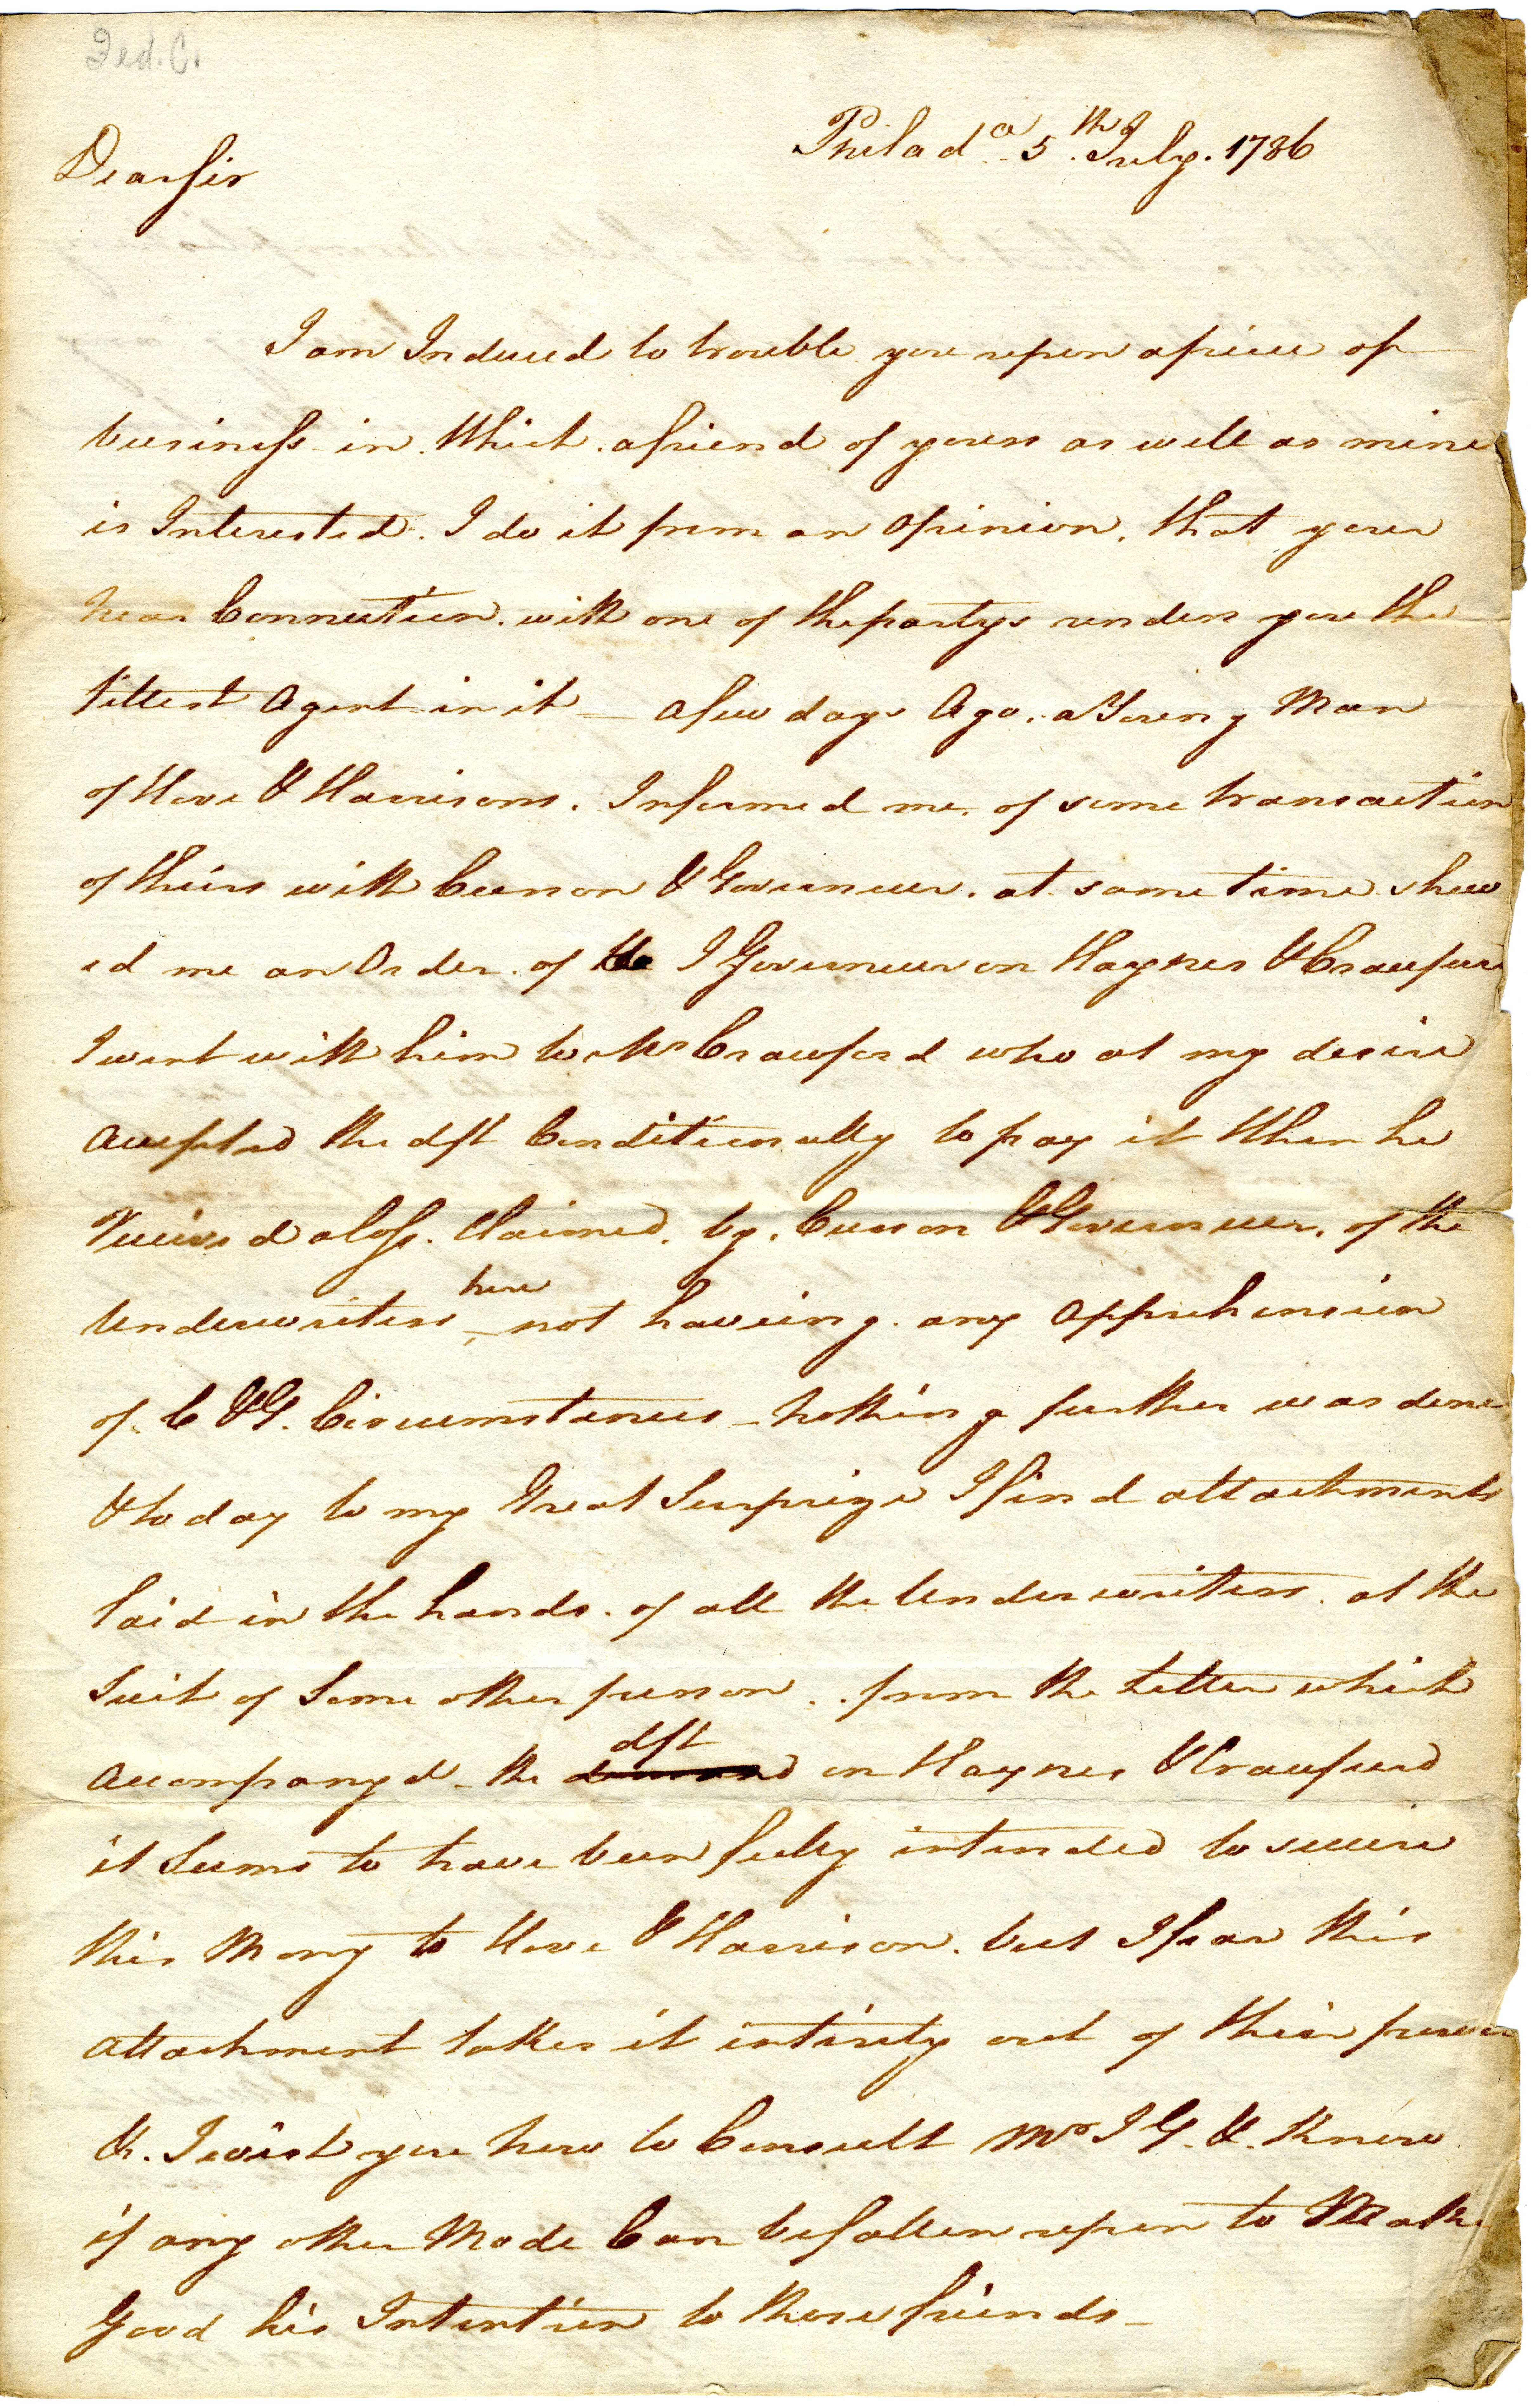 Fed. C.
Philad.a 5.th July. 1786
Dear Sir
I am Induced to trouble you upon a piece of
business in. Which. a friend of yours as well as mine
is Interested. I do it from an Opinion, that your
near Connection. with one of the partys renders you the
fittest Agent in it — a few days Ago. a Young Man
of Hove & Harrisons. Informed me. of some transaction
of theirs with Curson & Gouverneur. at same time shew
ed me an Order. of I Gouverneur on Haynes & Craufurd
I went with him to Mr Crawford who at my desire
accepted the dft Conditionally to pay it When he
Receiv'd a loss. Claimed. by. Curson & Gouverneur. of the
Underwriters here not haveing. any Apprehension
of. C & G. Circumstances – nothing further was done
& to day to my Great Surprize I find attachments
laid in the hands. of all the Underwriters. at the
Suit of Some other person.. from the Letter which
accompanyd – the dft on Haynes & Craufurd
it Seems to have been fully intended to secure
this Mony to Hove & Harrison. but I fear this
attachment takes it intirely out of their power
&. I wish you how to Consult Mr I G. &. Know
if any other Mode Can be fallen upon to Make
Good his Intention to those friends –